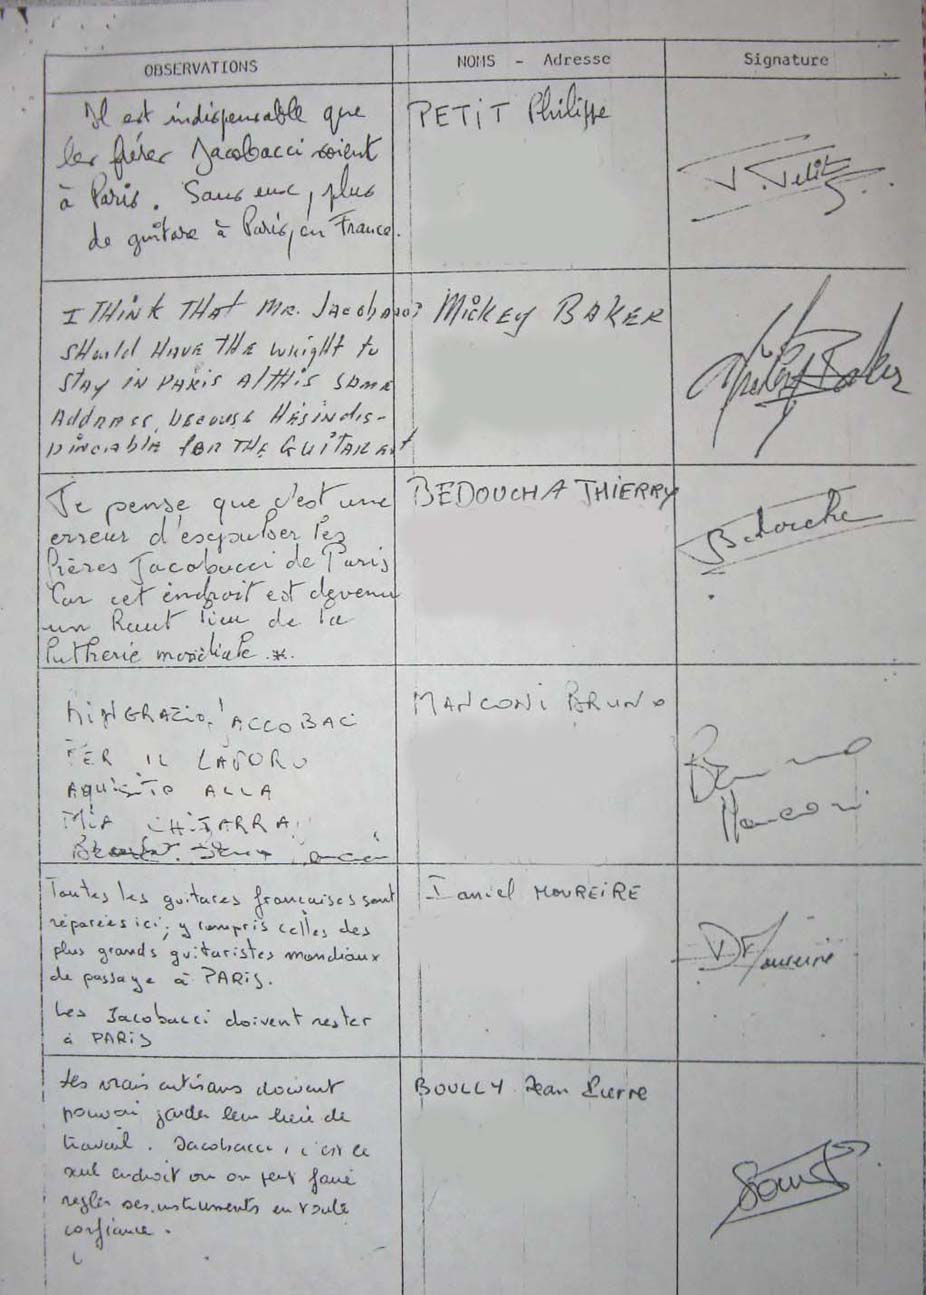 OBSERVATIONS
NOMS - Adresse
Signature
Il est indispensable que
les frères Jacobacci soient
à Paris. Sans eux, plus
de guitare à Paris, en France.
PETIT Philippe
I THINK THAT MR. JACOBACCI
SHOULD HAVE THE WRIGHT to
STAY IN PARIS AT THIS SAME
ADDRESS, BECOUSE HES INDIS-
PINCIABLE FOR THE GUITAREST
MICKEY BAKER
Mickey Baker
Je pense que c'est une
erreur d'expulser les
frères Jacobacci de Paris
Car cet endroit est devenu
un haut lieu de la
lutherie mondiale.*.
BEDOUCHA THIERRY
Bedoucha
ACCOBACI
PER IL LAVORO
AQUISITO ALLA
MIA CHITARRA
MANCONI BRUNO
Bruno
Manconi
Toutes les guitares françaises sont
réparées ici, y compris celles des
plus grands guitaristes mondiaux
de passage à PARIS.
Les Jacobacci doivent rester
à PARIS
Daniel MOUREIRE
Les vrais artisans doivent
pouvoir garder leur lieu de
travail. Jacobacci, c'est le
seul endroit ou on peut faire
regler ses instruments en toute
confiance.
BOULLY Jean Pierre